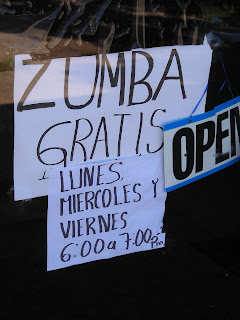 ZUMBA
GRATIS
OPEN
LUNES,
MIERCOLES Y
VIERNES
6:00 a 7:00 Pm.